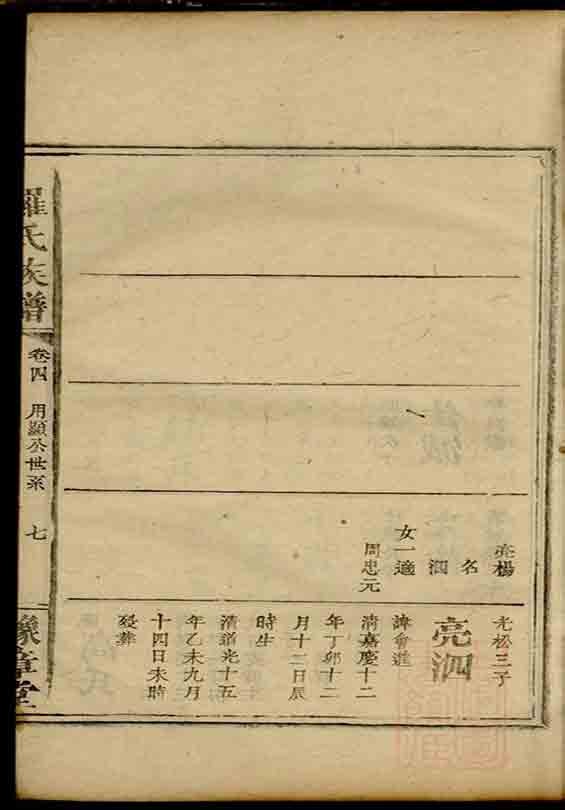 亮楊
名
泗
女一適
周忠元
光松三子
亮泗
諱會進
清嘉慶十二
年丁卯十二
月十二日辰
時生
清道光十五
年乙未九月
十四日未時
歿葬
羅氏族譜
卷四
用顯公世系
七
豫章堂